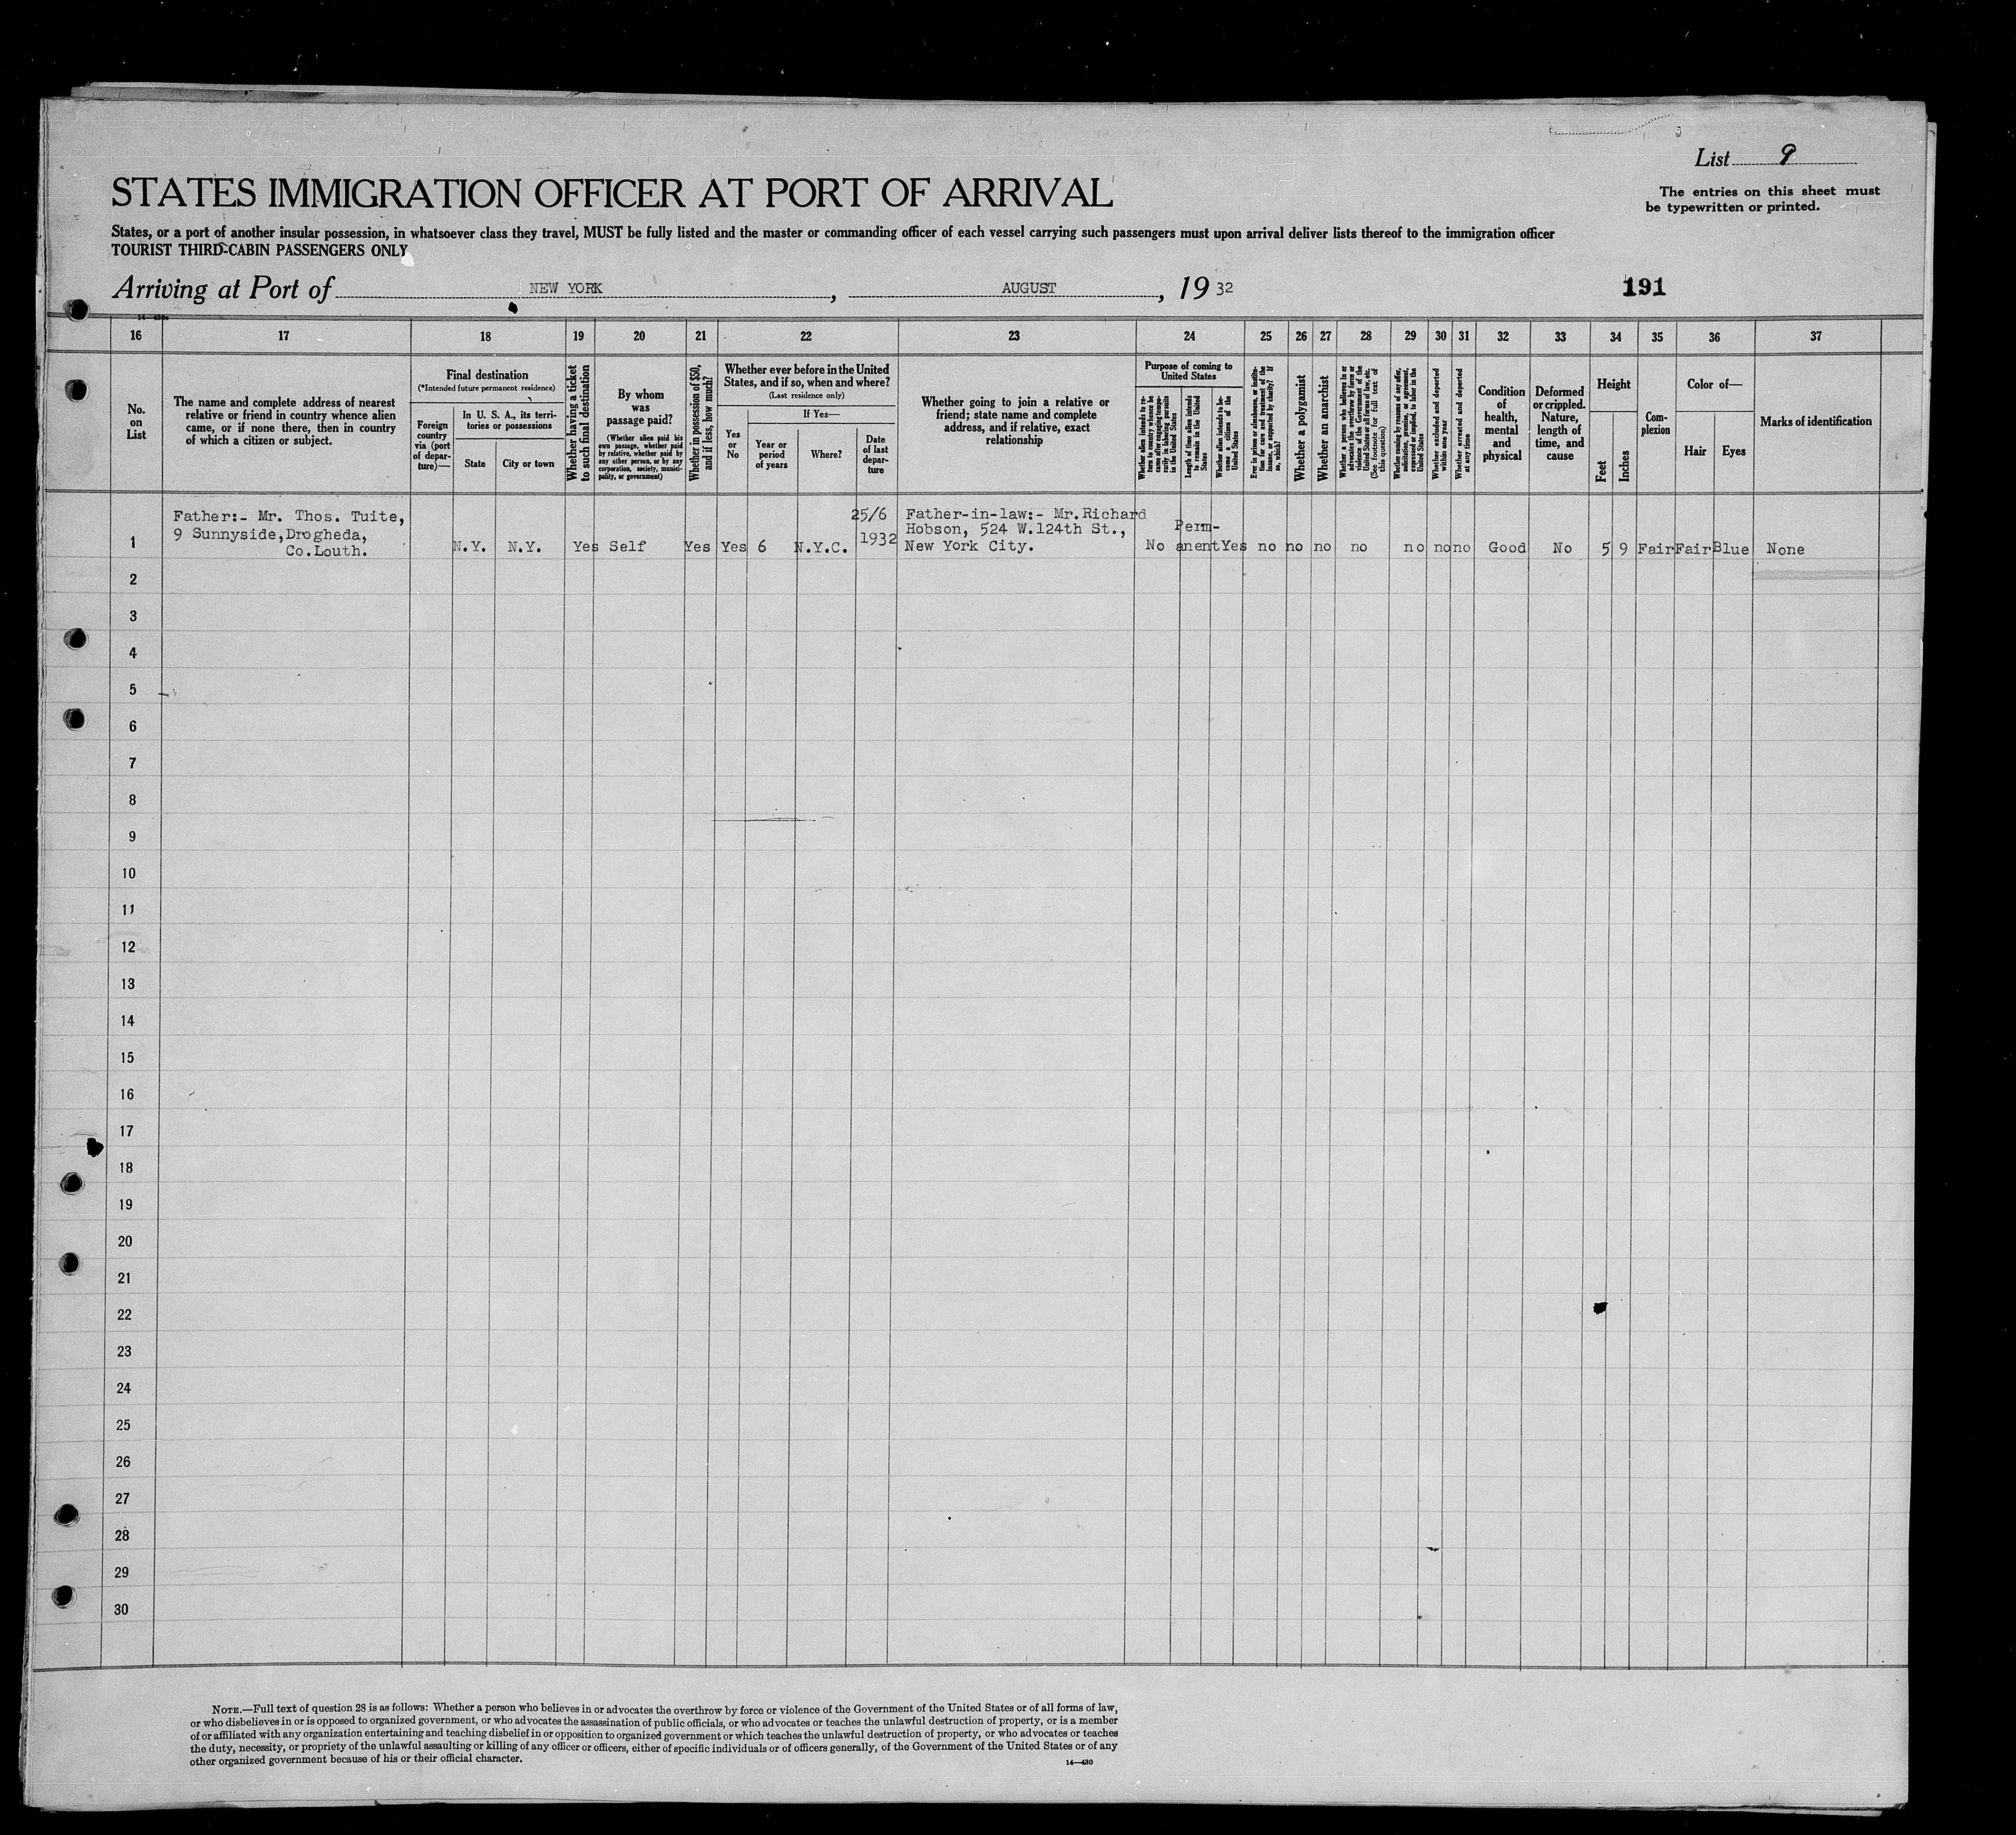 List 9
The entries on this sheet must
be typewritten or printed.
STATES IMMIGRATION OFFICER AT PORT OF ARRIVAL
States, or a port of another insular possession, in whatsoever class they travel, MUST be fully listed and the master or commanding officer of each vessel carrying such passengers must upon arrival deliver lists thereof to the immigration officer
TOURIST THIRD-CABIN PASSENGERS ONLY
Arriving at Port of NEW YORK, AUGUST, 19 32
191
16 17 18 19 20 21 22 23 24 25 26 27 28 29 30 31 32 33 34 35 36 37
No.
on
List
The name and complete address of nearest
relative or friend in country whence alien
came, or if none there, then in country
of which a citizen or subject.
Final destination
(*Intended future permanent residence)
Foreign
country
via (port
of depar-
ture)—
In U. S. A., its terri-
tories or possessions
State
City or town
Whether having a ticket
to such final destination
By whom
was
passage paid?
(Whether alien paid his
own passage, whether paid
by relative, whether paid by
any other person, or by any
corporation, society, munici-
pality, or government)
Whether in possession of $50,
and if less, how much?
Whether ever before in the United
States, and if so, when and where?
(Last residence only)
Yes
or
No
If Yes—
Year or
period
of years
Where?
Date
of last
depar-
ture
Whether going to join a relative or
friend; state name and complete
address, and if relative, exact
relationship
Purpose of coming to
United States
Whether alien intends to re-
turn to country whence he
came after engaging tempo-
rarily in laboring pursuits
in the United States
Length of time alien intends
to remain in the United
States
Whether alien intends to be-
come a citizen of the
United States
Ever in prison or almshouse, or institu-
tion for care and treatment of the
insane, or supported by charity? If
so, which?
Whether a polygamist
Whether an anarchist
Whether a person who believes in or
advocates the overthrow by force or
violence of the Government of the
United States or all forms of law, etc.
(See footnote for full text of
this question)
Whether coming by reasons of any offer,
solicitation, promise, or agreement,
expressed or implied, to labor in the
United States
Whether excluded and deported
within one year
Whether arrested and deported
at any time
Condition
of
health,
mental
and
physical
Deformed
or crippled.
Nature,
length of
time, and
cause
Height
Feet
Inches
Com-
plexion
Color of—
Hair
Eyes
Marks of identification
1
Father:- Mr. Thos. Tuite,
9 Sunnyside, Drogheda,
Co.Louth.
N.Y. N.Y. Yes Self Yes Yes 6 N.Y.C.
25/6
1932
Father-in-law:- Mr. Richard
Hobson, 524 W.124th St.,
New York City.
No
Perm-
anent
Yes no no no no no no no Good No 5 9 Fair Fair Blue None
2
3
4
5
6
7
8
9
10
11
12
13
14
15
16
17
18
19
20
21
22
23
24
25
26
27
28
29
30
NOTE.—Full text of question 28 is as follows: Whether a person who believes in or advocates the overthrow by force or violence of the Government of the United States or of all forms of law,
or who disbelieves in or is opposed to organized government, or who advocates the assassination of public officials, or who advocates or teaches the unlawful destruction of property, or is a member
of or affiliated with any organization entertaining and teaching disbelief in or opposition to organized government or which teaches the unlawful destruction of property, or who advocates or teaches
the duty, necessity, or propriety of the unlawful assaulting or killing of any officer or officers, either of specific individuals or of officers generally, of the Government of the United States or of any
other organized government because of his or their official character.
14—430